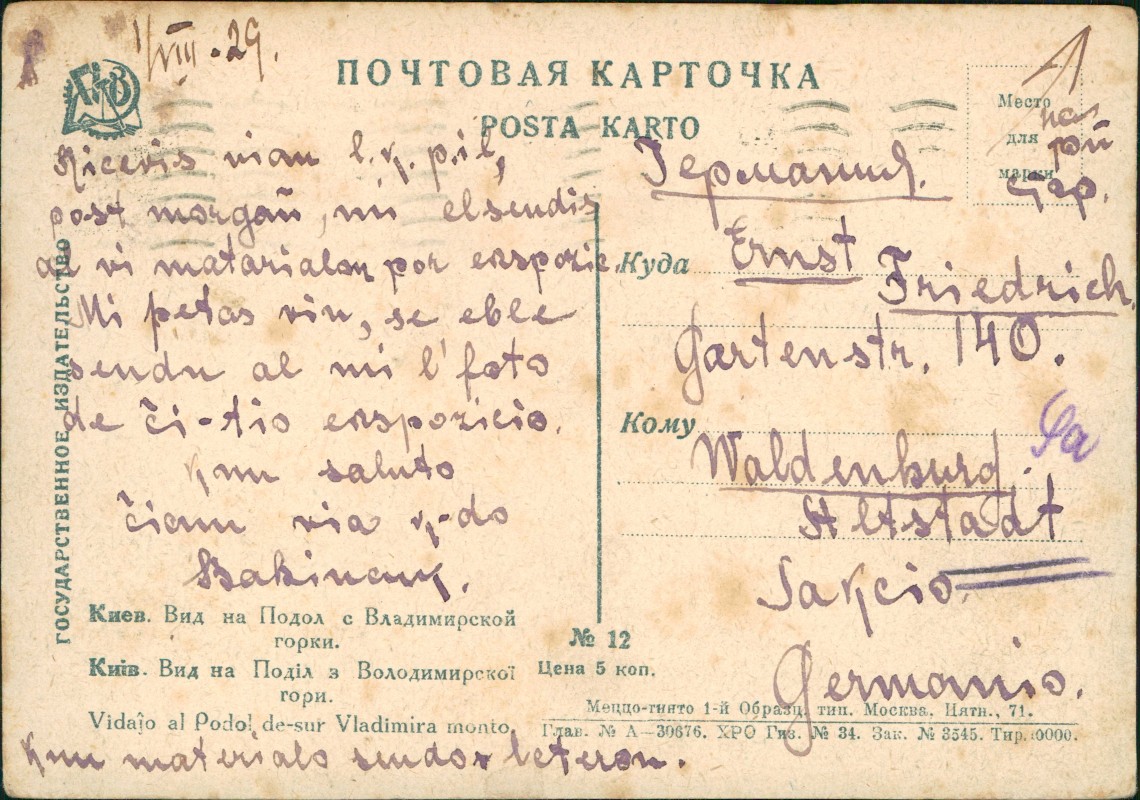 1/VIII-29.
ПОЧТОВАЯ КАРТОЧКА
POSTA KARTO
Место
для
марки
Ricevis vian l. k. p.il,
post morgaŭ, mi elsendis
al vi matarialon por ekspozic.
Mi petas vin, se eble
sendu al mi l' foto
de ĉi-tio ekspozicio.
Kun saluto
ĉiam via k-do
Германия.
Куда Ernst
Friedrich.
Gartenstr. 140.
Кому
Waldenburg.
Altstadt
Sakcio
Germanio.
ГОСУДАРСТВЕННОЕ ИЗДАТЕЛЬСТВО
Киев. Вид на Подол с Владимирской
горки.
Київ. Вид на Поділ з Володимирської
гори.
Vidaĵo al Podol de-sur Vladimira monto.
№ 12
Цена 5 коп.
Меццо-тинто 1-й Образц. тип. Москва. Пятн., 71.
Глав. № А—30676. ХРО Гиз. № 34. Зак. № 3545. Тир. 0000.
Kun materialo sendos leteron.